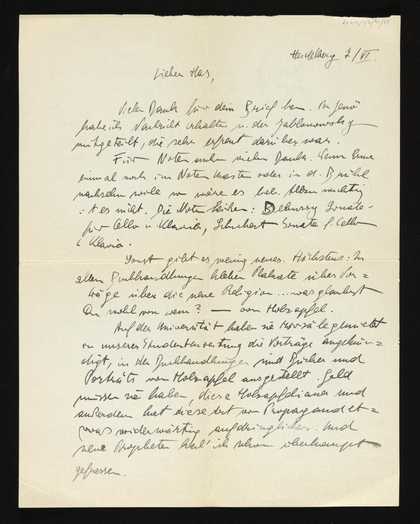 Heidelberg 2/VI.
Lieber Has,
Vielen Dank für dem Brief
habe ich Nachricht erhalten u. der Jablonowsky
mitgeteilt, die sehr erfreut darüber war.
Für Noten vielen Dank. Wenn
einmal noch im Notenkasten oder in d.
nachsehen wäre es
ist es nicht. Die Noten heißen: Debussy Sonate
für Cello u Klavier, Schubert Sonate f. Cello
u Klavier.
Sonst gibt es wenig neues. Höchstens: In
allen Buchhandlungen kleben Plakate über Vor=
träge über die neue Religion ... was glaubst
Du wohl von wem? — von Holzapfel.
Auf der Universität haben sie Hörsäle gemietet
in unserer Studentenzeitung die Vorträge angekün=
digt, in den Buchhandlungen sind Bücher und
Porträts von Holzapfel ausgestellt. Geld
müssen sie haben, diese Holzapfelianer und
außerdem hat diese Art von Propaganda et=
was widerwärtig aufdringliches. Und
neue Propheten hab' ich schon überhaupt
gefressen.